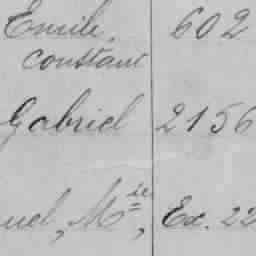 Emile, 602
Constant
Gabriel 2156
uel, Mie, Ex. 22